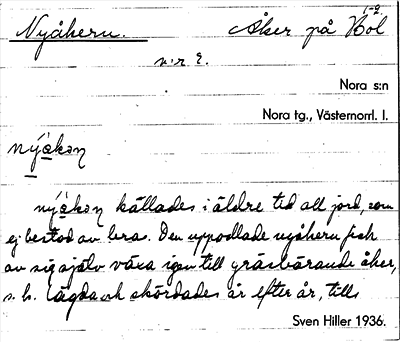 Nyåkern. Åker på Böl 1-2
v:r 2.
Nora s:n
Nora tg., Västernorrl. l.
nýåkəɳ
nýåkəɳ kallades i äldre tid all jord, som
ej bestod av lera. Den uppodlade nyåkern fick
av sig själv växa igen till gräsbärande åker,
s. k. lägda och skördades år efter år, tills
Sven Hiller 1936.